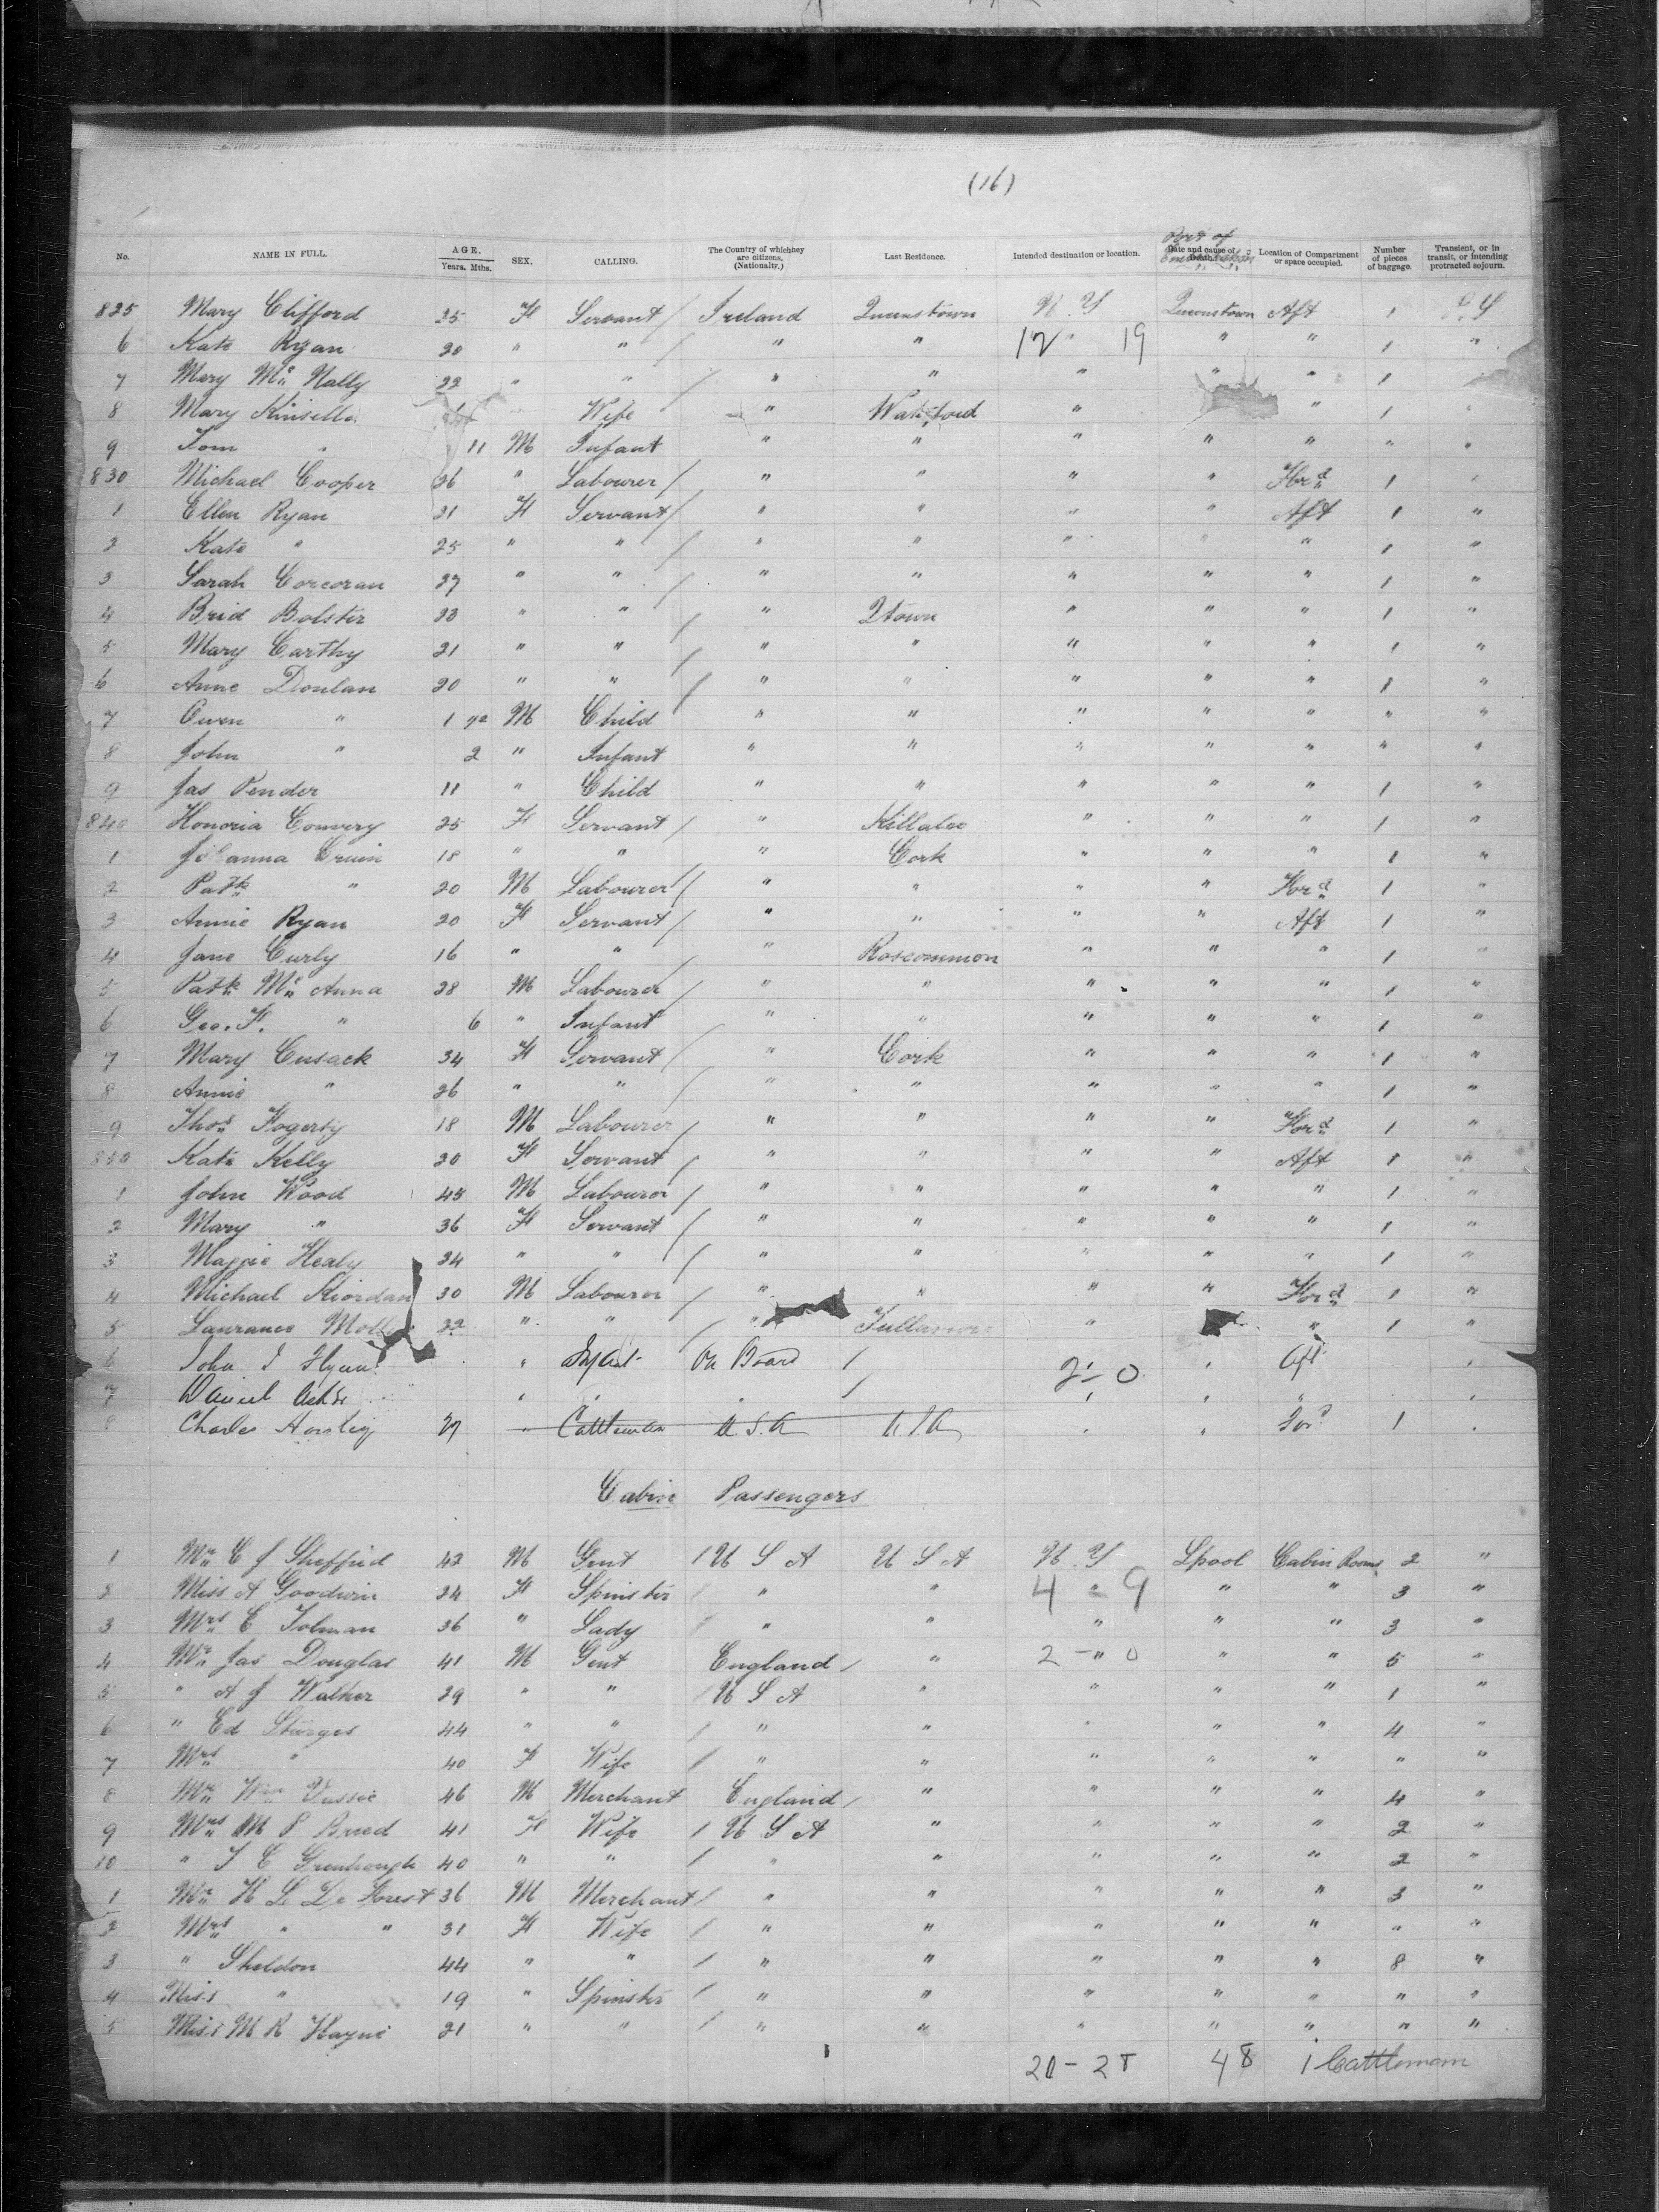 (16)
Port of
No. NAME IN FULL. AGE. Years. Mths. SEX. CALLING. The Country of which they are citizens. (Nationality.) Last Residence. Intended destination or location. Date and cause of Death. Location of Compartment or space occupied. Number of pieces of baggage. Transient, or in transit, or intending protracted sojourn.
825 Mary Clifford 25 F Servant / Ireland Queenstown N.Y Queenstown Aft 1
6 Kate Ryan 20 " " / " " 12 " 19 " " 1 "
7 Mary Mc Nally 22 " " / " " " " " 1
8 Mary Kinsella Wife " Waterford " " 1 "
9 Tom " 11 M Infant " " " " " " "
830 Michael Cooper 26 " Labourer / " " " " Ford 1 "
1 Ellen Ryan 21 F Servant / " " " " Aft 1 "
2 Kate " 25 " " / " " " " " 1 "
3 Sarah Corcoran 27 " " / " " " " " 1 "
4 Brid Bolster 23 " " / " Qtown " " " 1 "
5 Mary Carthy 21 " " / " " " " " 1 "
6 Anne Donlan 20 " " / " " " " " 1 "
7 Owen " 1 M Child " " " " " " "
8 John " 2 " Infant " " " " " " "
9 Jas Pender 11 " Child " " " " " 1 "
840 Honoria Convery 25 F Servant / " Killaloe " " " 1 "
1 Johanna 18 " " " Cork " " " 1 "
2 Patk " 20 M Labourer / " " " " Ford 1 "
3 Annie Ryan 20 F Servant / " " " " Aft 1 "
4 Jane Curly 16 " " / " Roscommon " " " 1 "
5 Patk Mc Anna 28 M Labourer / " " " " " 1 "
6 Geo. F. " 6 " Infant " " " " " 1 "
7 Mary Cusack 34 F Servant / " Cork " " " 1 "
8 Annie " 26 " " / " " " " " 1 "
9 Thos Fogerty 18 M Labourer / " " " " Ford 1 "
850 Kate Kelly 20 F Servant / " " " " Aft 1 "
1 John Wood 45 M Labourer / " " " " " 1 "
2 Mary " 36 F Servant / " " " " " 1 "
3 Maggie Healy 24 " " / " " " " " 1 "
4 Michael Riordan 30 M Labourer / " " " " Ford 1 "
5 Laurance 22 " " / " " " 1 "
6 John J Flynn " Infant On Board / 2 - 0 " Aft "
7 Daniel " " " / " " " "
8 Charles 27 " Cattleman U.S.A U.S.A " " Ford 1 "
Cabin Passengers
1 Mr C J Sheffrid 42 M Gent / U S A U S A N.Y Lpool Cabin Rooms 2 "
2 Miss A Goodwin 24 F Spinster / " " 4 - 9 " " 3 "
3 Mrs C Tolman 36 " Lady / " " " " " 3 "
4 Mr Jas Douglas 41 M Gent England / " 2 - " 0 " " 5 "
5 " A J Walker 29 " " / U S A " " " " 1 "
6 " Ed Sturges 44 " " / " " " " " 4 "
7 Mrs " 40 F Wife / " " " " " " "
8 Mr Wm Vassie 46 M Merchant England / " " " " 4 "
9 Mrs M P Breed 41 F Wife / U S A " " " " 2 "
10 " T C Greenhough 40 " " / " " " " " 2 "
1 Mr H L De Forest 36 M Merchant / " " " " " 3 "
2 Mrs " " 31 F Wife / " " " " " " "
3 " Sheldon 44 " " / " " " " " 8 "
4 Miss " 19 " Spinster / " " " " " " "
5 Miss M R Hayne 21 " " / " " " " " " "
20 - 28 48 1 Cattleman